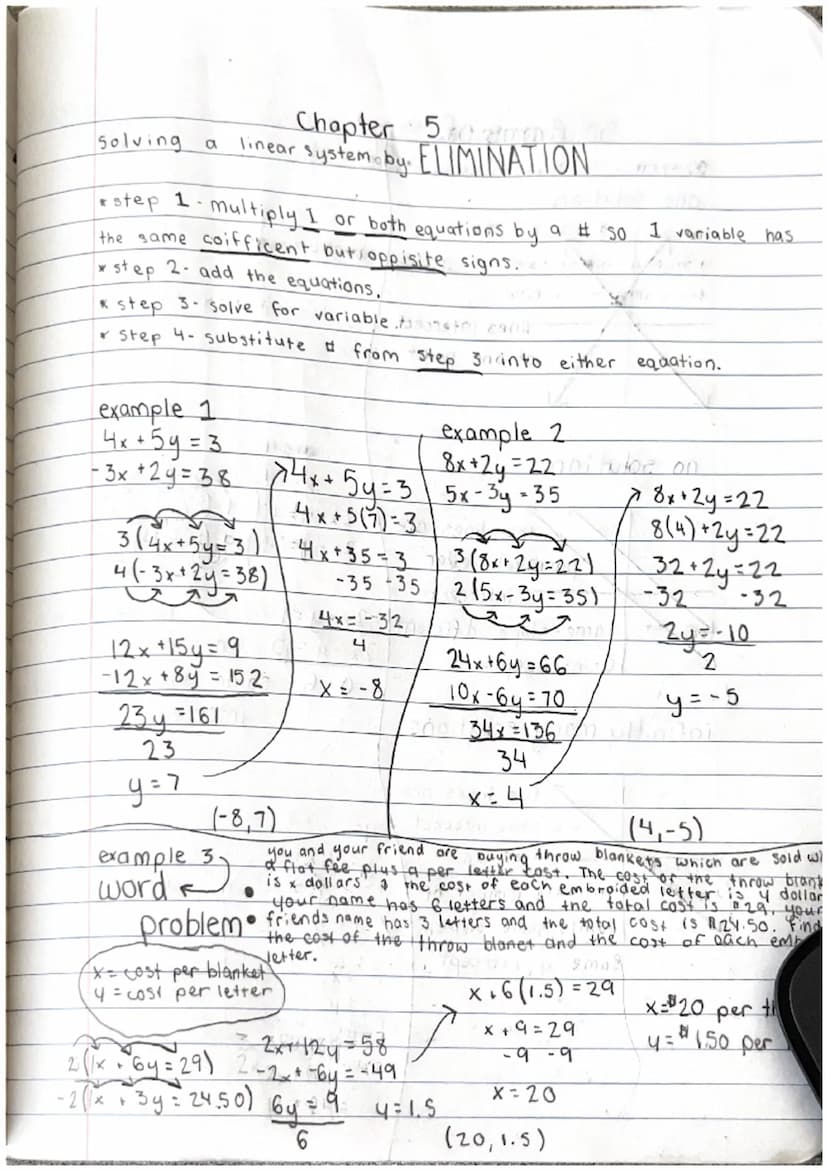 Chapter 5
solving a linear system by. ELIMINATION
* step 1 - multiply 1 or both equations by a # so 1 variable has
the same coifficent but oppisite signs.
* step 2 - add the equations.
* step 3 - solve for variable.
* step 4 - substitute # from step 3 into either eqaation.
example 1
4x + 5y = 3
-3x + 2y = 38
3(4x+5y=3)
4(-3x+2y=38)
12x +15y = 9
-12x +8y = 152
23y = 161
23
y = 7
4x + 5y = 3
4x + 5(7) = 3
4x +35 = 3
-35 -35
4x = -32
4
x = -8
(-8,7)
example 2
8x+2y = 22
5x - 3y = 35
3(8x+2y=22)
2(5x-3y=35)
24x+6y=66
10x-6y=70
34x=136
34
x = 4
8x+2y=22
8(4)+2y=22
32+2y=22
-32 -32
2y=-10
2
y = -5
(4,-5)
example 3
word
problem
• you and your friend are buying throw blankets which are sold
a flat fee plus a per letter cost. The cost of the throw
is x dollars & the cost of each embroided letter is y dollar
your name has 6 letters and the total cost is $29, your
• friends name has 3 letters and the total cost is $24.50. Find
the cost of the throw blanet and the cost of each
letter.
x = cost per blanket
y = cost per letter
2(1x + 6y=29)
-2(1x + 3y = 24.50)
2x+12y=58
-2x+-6y=-49
6y = 9
6
y=1.5
x + 6(1.5) = 29
x + 9 = 29
-9 -9
x = 20
(20,1.5)
x=$20 per
y=$1.50 per